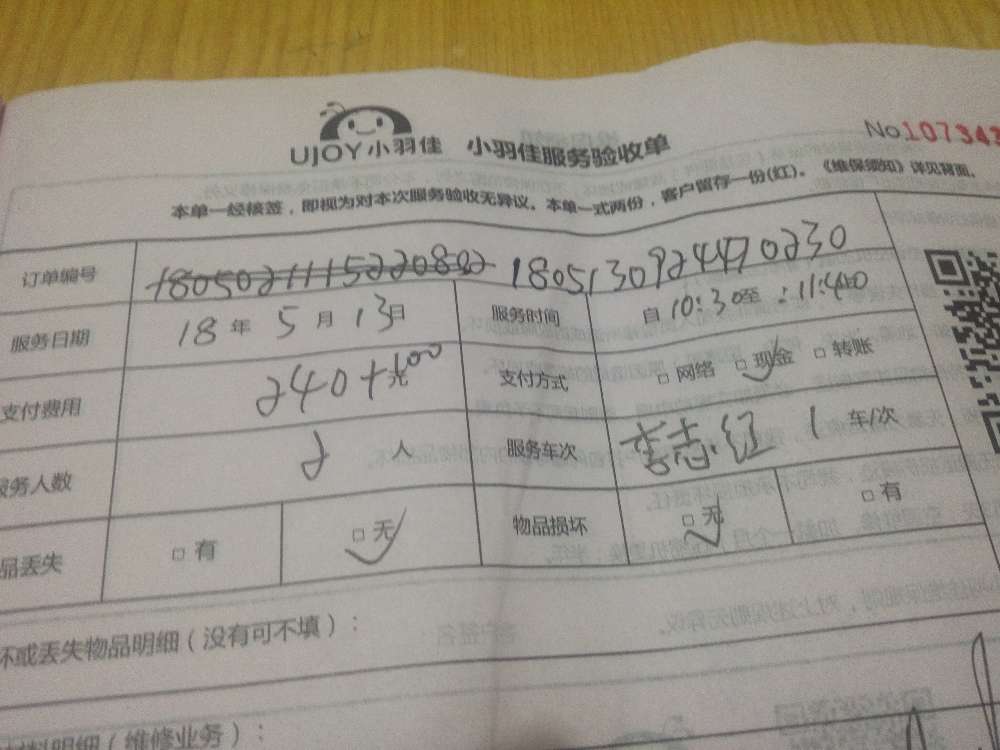 UJOY小羽佳 小羽佳服务验收单 No.107343
本单一经核签，即视为对本次服务验收无异议。本单一式两份，客户留存一份(红)。《维保须知》详见背面。
订单编号 1805021115220802 1805130924470230
服务日期 18 年 5 月 13日 服务时间 自 10:30至 :11:40
支付费用 240+100 元 支付方式 □ 网络 □ 现金 □ 转账
服务人数 2 人 服务车次 李志 1 车/次
品丢失 □ 有 □ 无 物品损坏 □ 无 □ 有
坏或丢失物品明细（没有可不填）：
料明细（维修业务）：